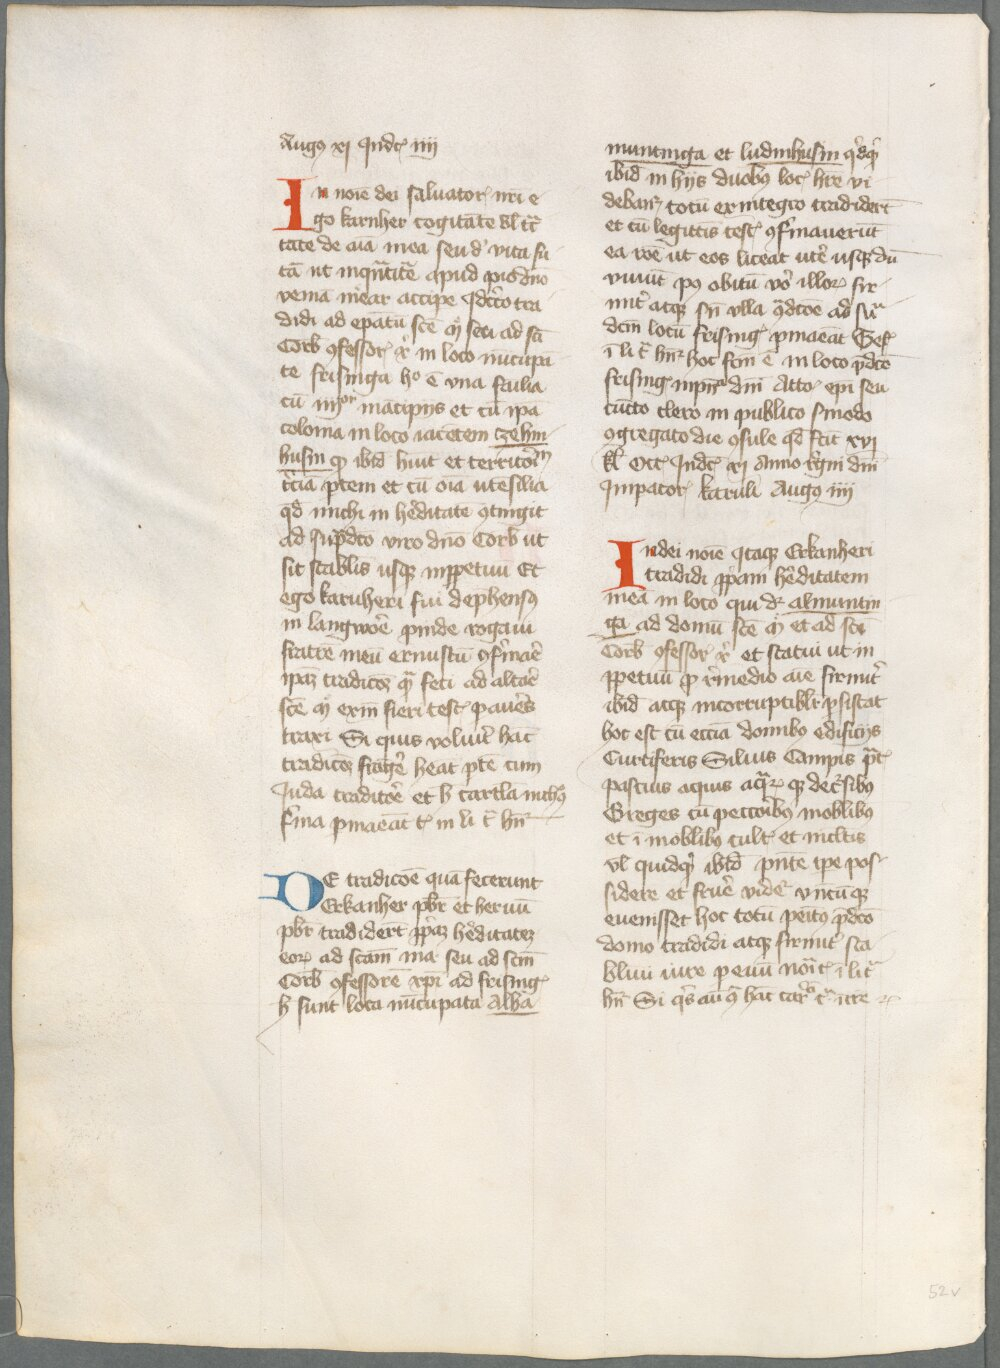 Augꝰ xj Indcͥ iiij
In noīe dei saluatorꝭ nr̄i e
go karnher cogitāte vl̄ tͣc
tāte de aīa mea seu dͤ vita fu
tā ut inqͣntitͣe apud piū dn̄m
veniā mͤear accipe Idcͥco tra
didi ad ep̄atū scē mͣ seu ad sc̄i
Corb ꝯfessorꝭ xͥ in loco nūcupā
te frisinga hͦ ē vna fa̅ilia
cū iiijor mācipijs et cū ip̄a
colonia in loco iacētem czehin
husin qͥ ibid̄ hn̄it et territoͥm
tͥciā ꝑtem et cū oīa utēsilia
qd̄ michi in hͤditate ꝯtingit
ad sup̄dco viro dn̄o Corb ut
sit stabilis usqꝫ inꝑpetuū Et
ego karuheri fui dephensꝰ
in langwoͤē ꝓinde rogaui
fratrē meū ernustū ꝯfͥmāē
ip̄aꝫ tradicōꝫ qͣ feci ad altāē
scē mͣ exīn fieri testꝭ ꝑ auēs
traxi Si quis voluīt hāc
tradicōꝫ frāgͤe heāt ꝑtē cum
Juda traditoͤe et h̄ cartl̄a nichꝰ
fͥma ꝑmaeāt tͥ in li tͥ hn̄r
DE tradicōe quā fecerunt
Erkanher pb̄r et heruū
pb̄r tradidert̄ ꝓpͥaꝫ hͤditateꝫ
eoꝝ ad scām mar seu ad scm̄
Corb ꝯfessorē xp̄i ad frisingꝭ
h̄ sunt loca nūcupata Alba
muntinga et ludinhusin qd̄qͥ
ibid̄ in hijs duobꝰ locꝭ hr̄e vi
debanꝫ totū ex integro tradidert̄
et cū legittīs testꝭ ꝯfͥmauerūt
ea roē ut eos liceat utͤe usqꝫ dū
viuūt pꝰ obitū voͦ illoꝝ fir
mitͥ atqꝫ sn̄ vlla ꝯͣdcōe ad sͣ
dcm̄ locū frisingꝭ ꝑmaeāt Gesͭ
ī li tͥ hn̄r hoc fcm̄ ē in loco p̄dco
frisingꝭ in pn̄ia dn̄i Atto ep̄i seu
cūcto clero in publico sinodo
ꝯgregato die ꝯsule qd̄ fcīt xvj
kl̄ Octͥ Indcͥ xj Anno rͤgni dn̄i
Impatorꝭ karuli Augꝰ iiij
In dei noīe qͥtaqꝫ Erkanheri
tradidi ꝓpͥam hͤditatem
meā in loco qui dͬ almuntin
ga ad domū scē mͣ et ad scī
Corb ꝯfessorꝭ xͥ et statui ut in
ꝑpetuū ꝓ rͤmedio aīe firmitͥ
ibid̄ atqꝫ incorruptiblr̄ ꝑsistat
hoc est cū ecc̄ia domibꝰ edificijs
Curtiferis Siluis Campis pͣtꝭ
pascuis aquis aqͣꝝ qꝫ decͬsibꝰ
Greges cū peccoͥbꝰ moblibus
et ī moblibus cultꝭ et incltis
vl̄ quidqͥ ibid̄ pn̄te tp̄e pos
sidere et fruē videͬ vncūqꝫ
euenisset hoc totū peītꝰ p̄dco
domo tradidi atqꝫ firmitͥ sta
bliui iure ꝑ euū noīt ī li tͥ
hn̄r Si qͥs aū qͣ hāc carͣ tͥ īre
52v